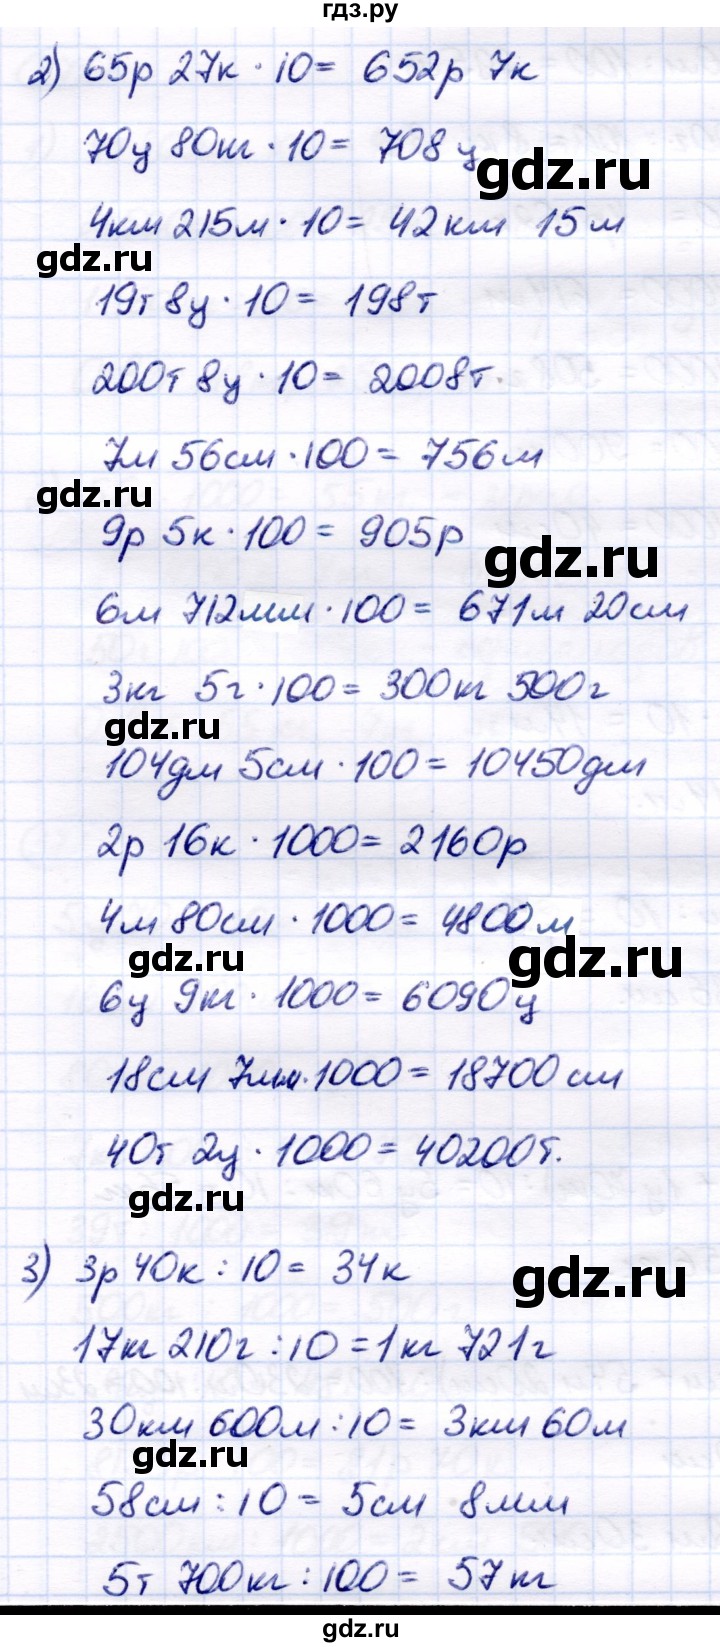 гдз.ру
2) 65р 27к · 10 = 652р 7к
70ц 80кг · 10 = 708 ц
gdz.ru
4км 215м · 10 = 42км 15м
gdz.ru
19т 8ц · 10 = 198т
200т 8ц · 10 = 2008т.
7м 56см · 100 = 756м
gdz.ru
9р 5к · 100 = 905р
gdz.ru
6м 712мм · 100 = 671м 20см
3кг 5г · 100 = 300кг 500г
gdz.ru
104дм 5см · 100 = 10450дм
2р 16к · 1000 = 2160р
4м 80см · 1000 = 4800м
gdz.ru
gdz.ru
6ц 9кг · 1000 = 6090ц
18см 7мм · 1000 = 18700см
40т 2ц · 1000 = 40200т.
gdz.ru
3) 3р 40к : 10 = 34к
gdz.ru
17кг 210г : 10 = 1кг 721г
30км 600м : 10 = 3км 60м
gdz.ru
58см : 10 = 5см 8мм
5т 700кг : 100 = 57кг
gdz.ru